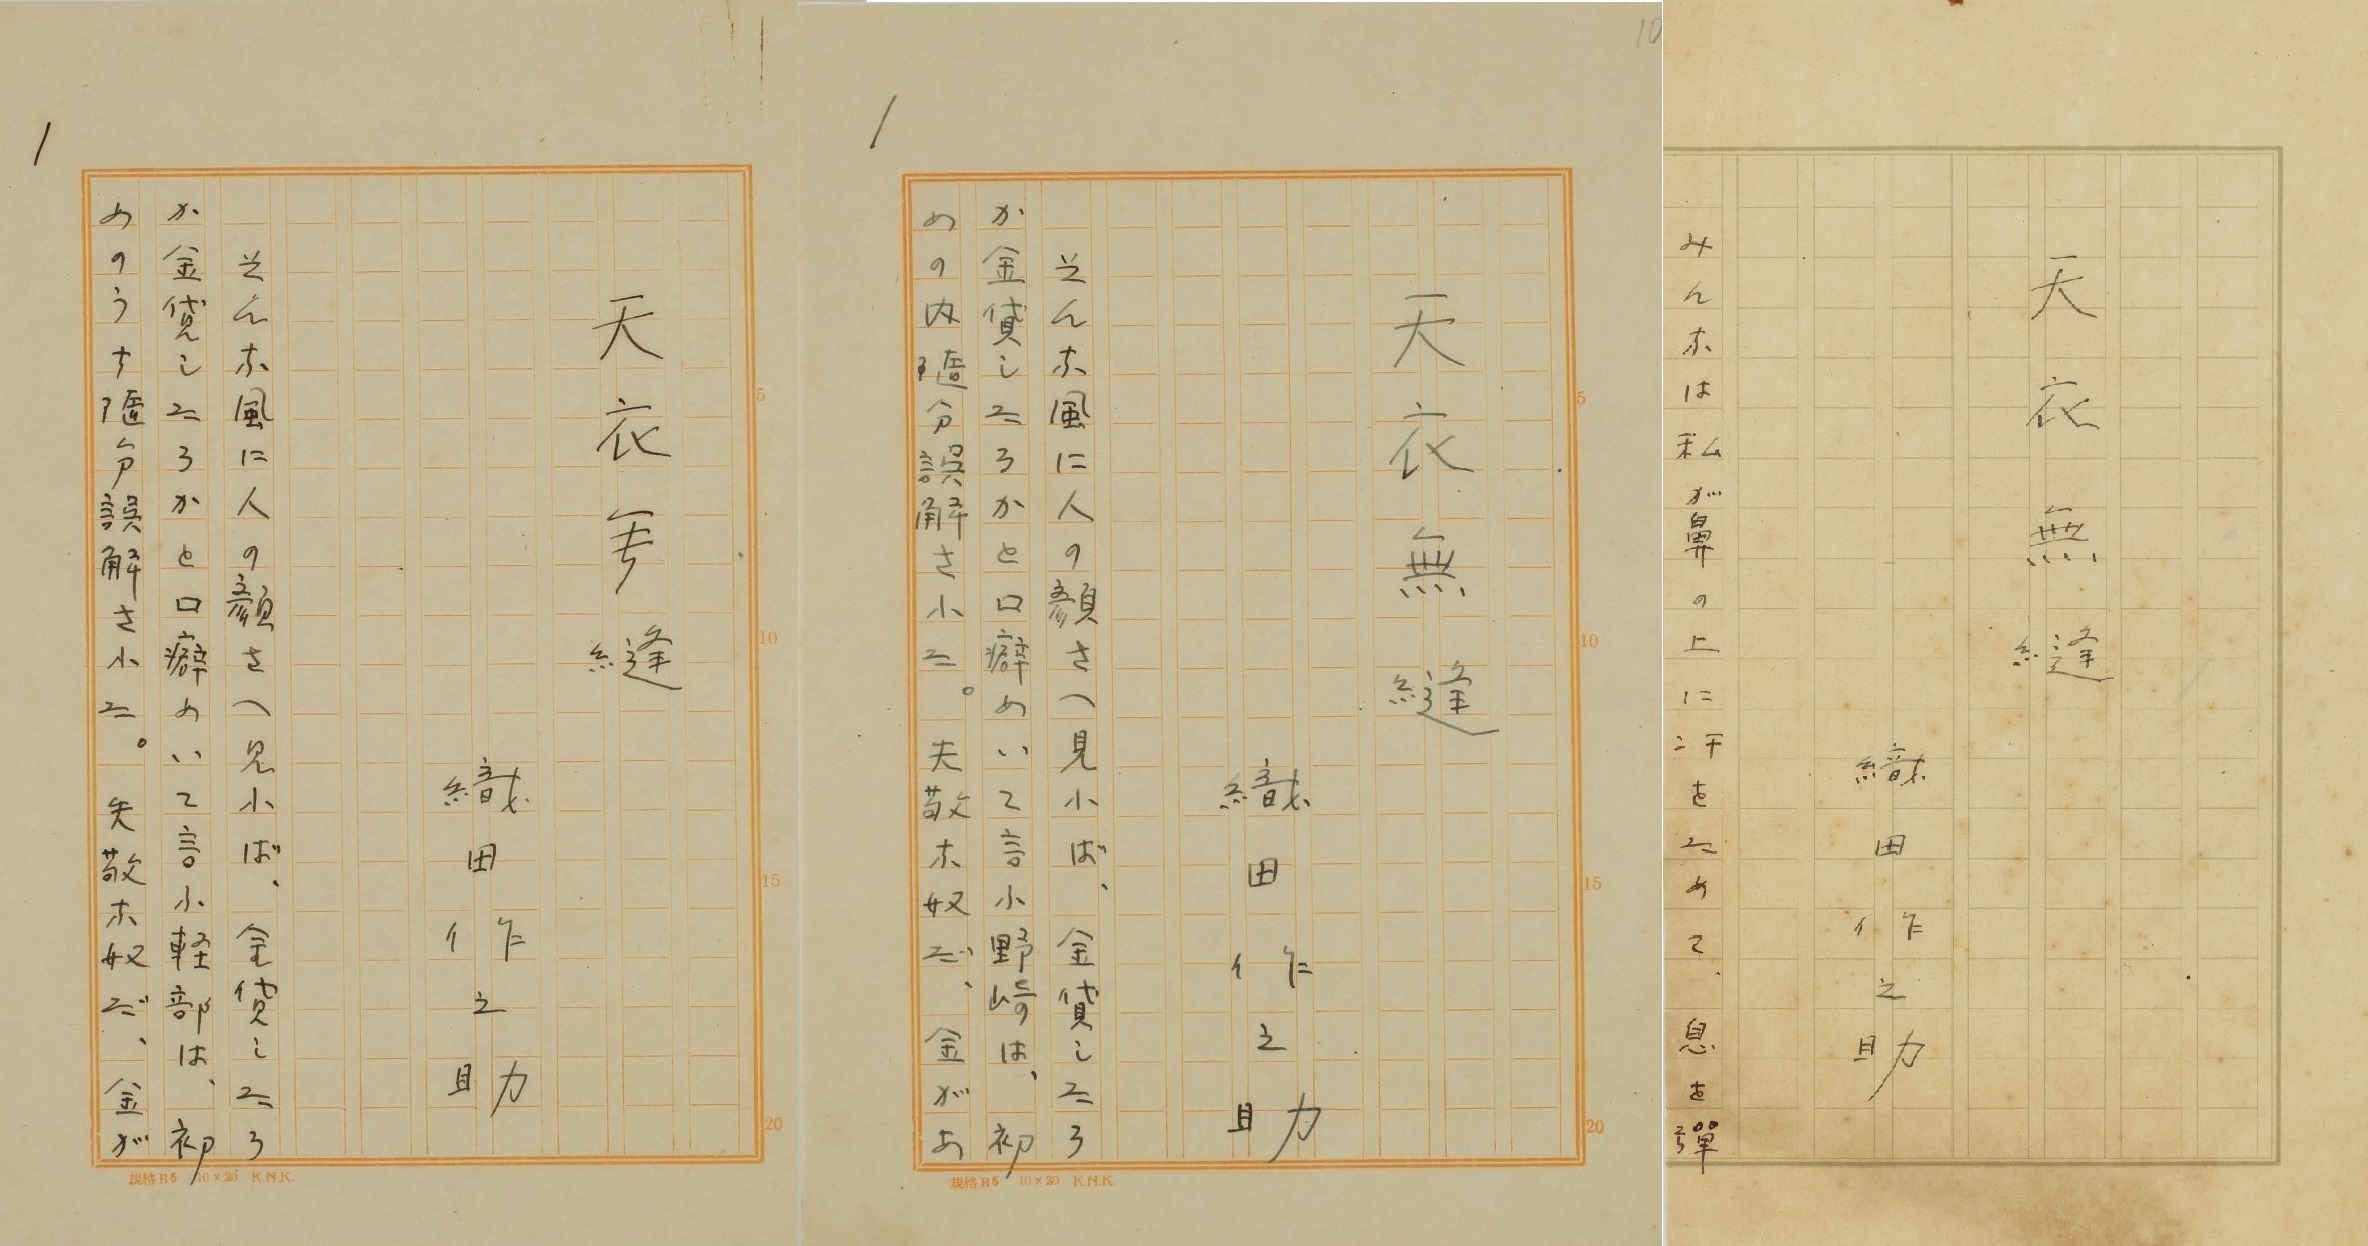 1
天衣無縫
織田作之助
そんな風に人の顔さへ見れば、金貸したろ
か金貸したろかと口癖めいて言ふ軽部は、初
めのうち随分誤解された。失敬な奴だ、金が
5
10
15
20
規格B5 10×20 K.N.K.
10
1
天衣無縫
織田作之助
そんな風に人の顔さへ見れば、金貸したろ
か金貸したろかと口癖めいて言ふ野崎は、初
めの内随分誤解された。失敬な奴だ、金があ
5
10
15
20
規格B5 10×20 K.N.K.
天衣無縫
織田作之助
みんなは私が鼻の上に汗をためて、息を彈